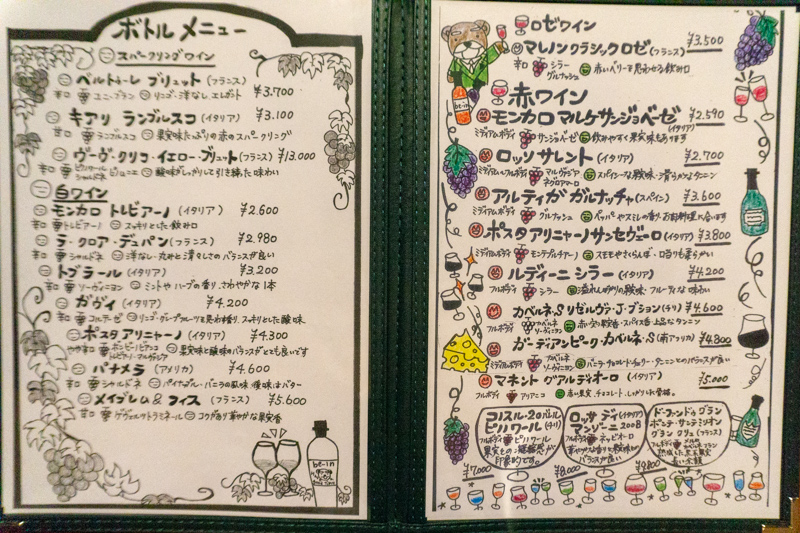 ボトルメニュー
スパークリングワイン
ベルトゥーレ ブリュット (フランス) ¥3.700
辛口 ユニ・ブラン リンゴ・洋なし、エレガント
キアリ ランブルスコ (イタリア) ¥3.100
辛口 ランブルスコ 果実味たっぷりの赤のスパークリング
ヴーヴ・クリコ・イエロー・ブリュット (フランス) ¥13.000
辛口 ピノノワール シャルドネ ピノムニエ 酸味がしっかりして引き締った味わい
白ワイン
モンカロ トレビアーノ (イタリア) ¥2.600
辛口 トレビアーノ スッキリとした飲み口
ラ・クロア・デュパン (フランス) ¥2.980
辛口 シャルドネ 洋なし・丸みと清々しさのバランスが良い
トブラール (イタリア) ¥3.200
辛口 ソーヴィニヨン ミントやハーブの香り、さわやかな1本
ガヴィ (イタリア) ¥4.200
辛口 コルテーゼ リンゴ・グレープフルーツを思わす香り、スッキリとした酸味
ポスタ アリニャーノ (イタリア) ¥4.300
やや辛口 果実味と酸味のバランスがとても良いです
パナメラ (アメリカ) ¥4.600
辛口 シャルドネ パイナップル・バニラの風味 後味はバター
メイブレム&フィス (フランス) ¥5.600
辛口 ゲヴュルツトラミネール コクがあり華やかな果実香
be-in
ロゼワイン
マレノン クラシック ロゼ (フランス) ¥3.500
辛口 シラー グルナッシュ 赤いベリーを思わせる飲み口
be-in
赤ワイン
モンカロ マルケ サンジョベーゼ (イタリア) ¥2.590
ミディアムボディ サンジョベーゼ 飲みやすく果実味もあります
ロッソ サレント (イタリア) ¥2.700
ミディアム〜フルボディ マルヴァジア ネグロアマーロ スパイシーな酸味・滑らかなタンニン
アルティガ ガルナッチャ (スペイン) ¥3.600
ミディアムボディ グルナッシュ ペッパーやスミレの香り お肉料理に合います
ポスタアリニャーノ サンセヴェーロ (イタリア) ¥3.800
ミディアムボディ モンテプルチアーノ スモモやさくらんぼ・口当りも柔らかい
ルディーニ シラー (イタリア) ¥4.200
フルボディ シラー フルーティな味わい
カベルネ.S リゼルヴァ・J・ブション (チリ) ¥4.600
フルボディ カベルネ ソーヴィニヨン 赤い実の果香・スパイス香 上品なタンニン
ガーディアンピーク・カベルネ・S (南アフリカ) ¥4.800
ミディアムボディ カベルネ ソーヴィニヨン バニラ・チョコレート・チェリー・タンニンとのバランスが良い
マネント ヴァルディオーロ (イタリア) ¥5.000
フルボディ アリアニコ 赤い果実、チョコレート、しっかりした骨格。
コイスル・20バレル ピノワール (チリ)
フルボディ ピノワール
果実との繊細感が
印象的です。
¥7.000
ロッサ ディ (イタリア)
マンゾーニ 2008
フルボディ ネッビオーロ
華やかな香りと酸味の
バランスが良い
¥8.000
ド・ファンドゥ グラン
ポンテ・サンテミリオン
グラン クリュ (フランス)
フルボディ メルロ カベルネ・フラン
熟成した黒系果実
長い余韻
¥9.800